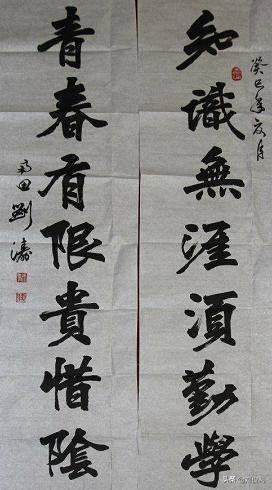 癸巳年夏月
知識無涯須勤學
青春有限貴惜陰
田劉濤
头条